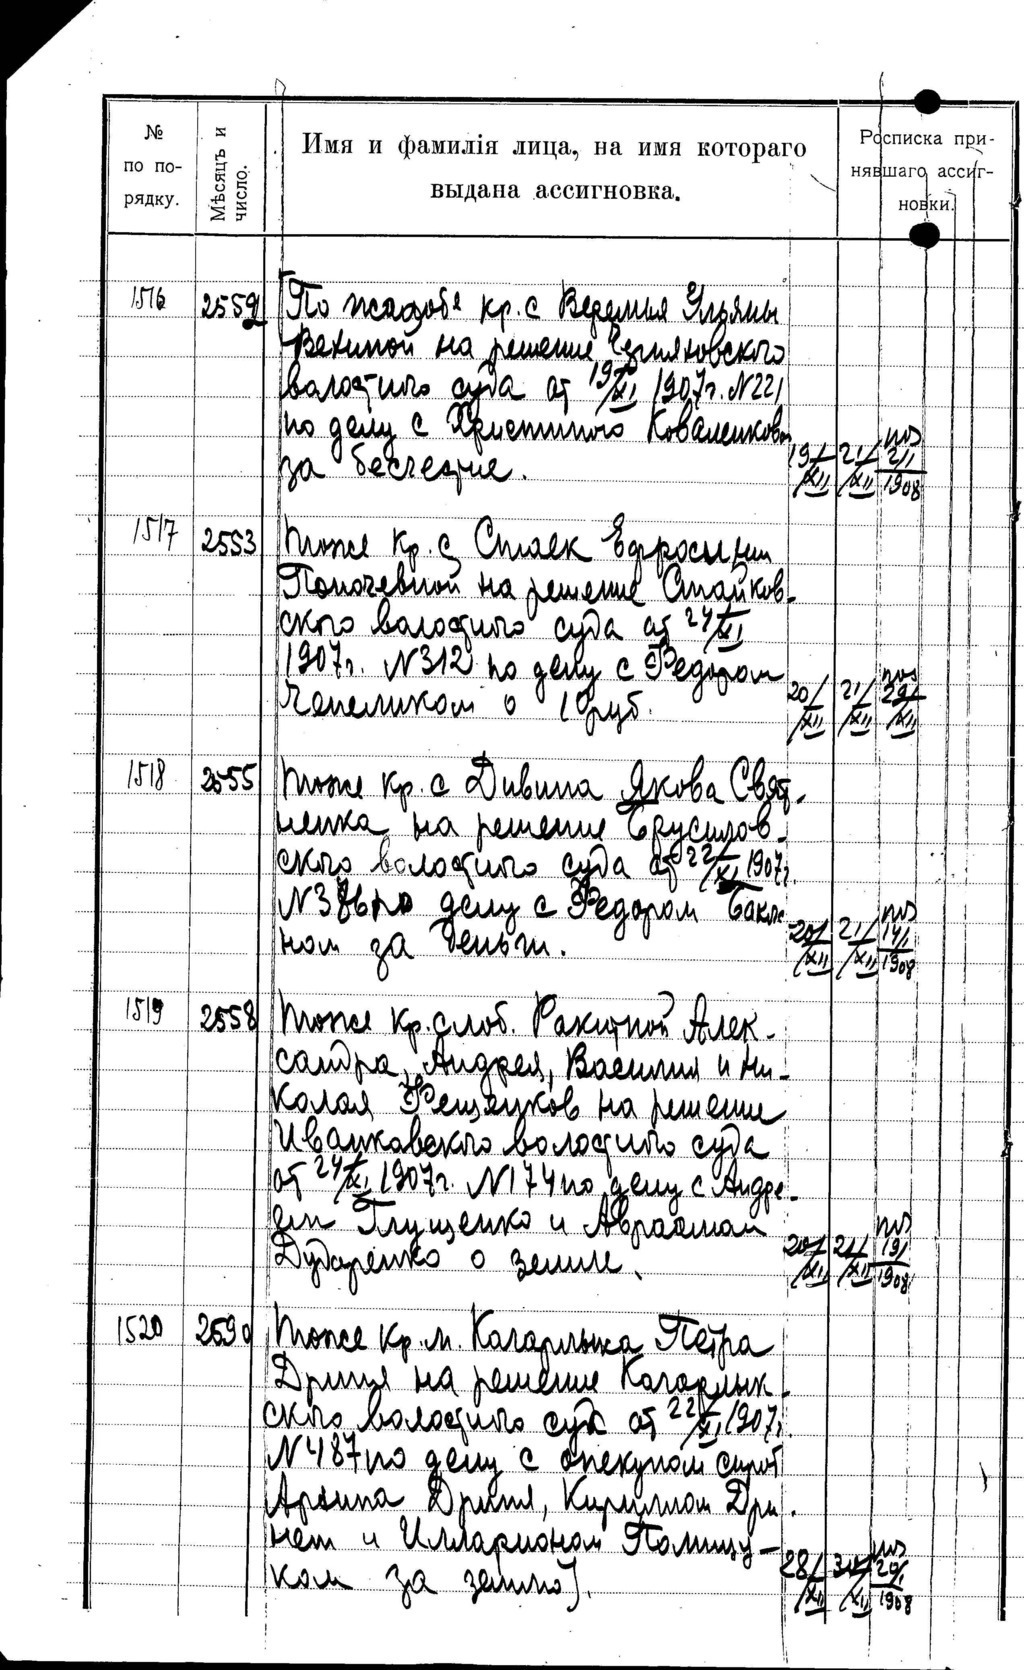 № по порядку.
Мѣсяцъ и число.
Имя и фамилія лица, на имя котораго
выдана ассигновка.
Росписка при-
нявшаго ассиг-
новки.
1516 2552 По жалобе кр. с Веремья Ульяны
на решение
волостного суда от 19/XI 1907г. N221
по делу с Христиною Коваленков
за бесчестие. 19/XII 21/XII 2/I 1908
1517 2553 тоже кр. с Стаек Ефросинии
на решение Стайков-
ского волостного суда от 24/XI
1907г. N312 по делу с Федором
Чепеликом о 10 руб. 20/XII 21/XII 29/XII
1518 2555 тоже кр. с Дивина Якова
на решение Брусилов-
ского волостного суда от 22/XI 1907г.
по делу с Федором
ном за деньги. 20/XII 21/XII 14/I 1908
1519 2558 тоже кр. слоб. Ракитной Алек-
сандра, Андрея, Василия и Ни-
колая на решение
Иванковского волостного суда
от 24/XI 1907г. N174 по делу с Андре-
ем Глущенко и Авраамом
Дударенко о земле. 20/XII 21/XII 19/I 1908
1520 2590 тоже кр. м. Кагарлыка Петра
Дриня на решение Кагарлык-
ского волостного суда от 22/XI 1907г.
N487 по делу с опекуном сирот
Архипа Дриня, Кириллом Дри-
нем и Илларионом Полищу-
ком за землю). 28/XII 31/XII 29/I 1908